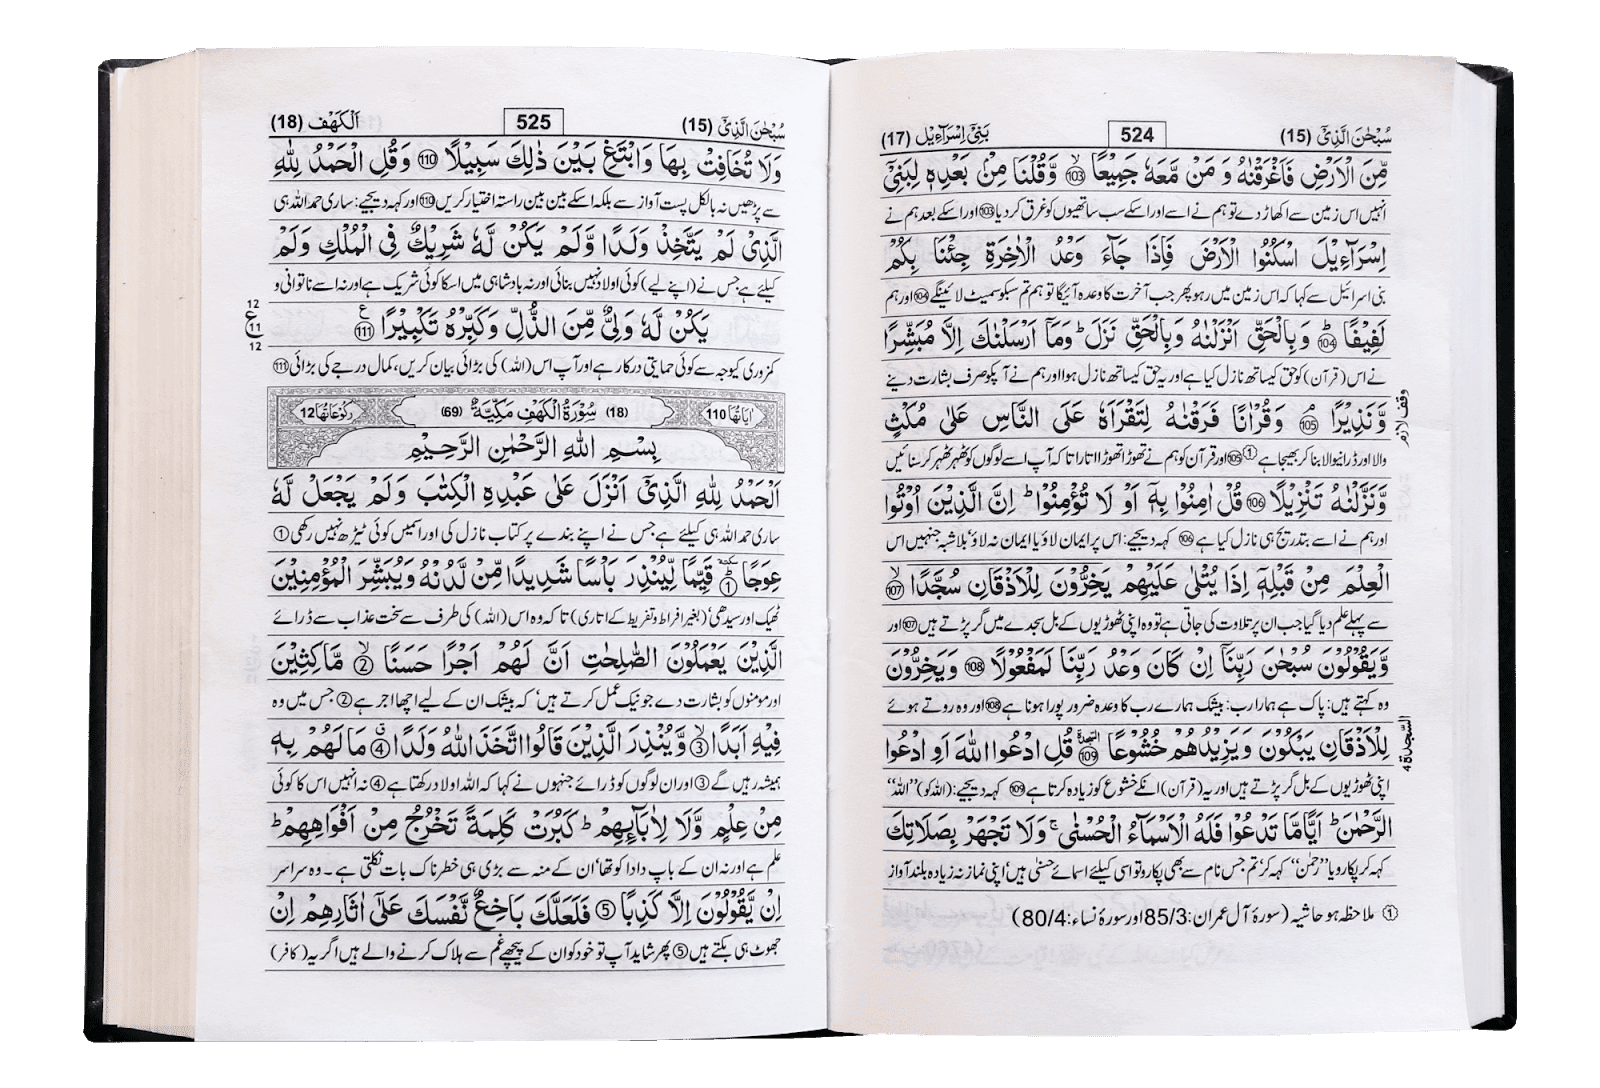 سُبْحٰنَ الَّذِىْٓ (15) 524 بَنِىْٓ اِسْرَآءِيْل (17)
مِّنَ الْاَرْضِ فَاَغْرَقْنٰهُ وَ مَنْ مَّعَهٗ جَمِيْعًا ۙ103 وَّقُلْنَا مِنْۢ بَعْدِهٖ لِبَنِىْٓ
انہیں اس زمین سے اکھاڑ دے تو ہم نے اسے اور اسکے سب ساتھیوں کو غرق کر دیا 103 اور اسکے بعد ہم نے
اِسْرَآءِيْلَ اسْكُنُوا الْاَرْضَ فَاِذَا جَآءَ وَعْدُ الْاٰخِرَةِ جِئْنَا بِكُمْ
بنی اسرائیل سے کہا کہ اس زمین میں رہو پھر جب آخرت کا وعدہ آئیگا تو ہم تم سبکو سمیٹ لائینگے 104 اور ہم
لَفِيْفًا ؕ104 وَبِالْحَقِّ اَنْزَلْنٰهُ وَبِالْحَقِّ نَزَلَ ؕ وَمَاۤ اَرْسَلْنٰكَ اِلَّا مُبَشِّرًا
نے اس (قرآن) کو حق کیساتھ نازل کیا ہے اور یہ حق کیساتھ نازل ہوا اور ہم نے آپکو صرف بشارت دینے
وَّنَذِيْرًا ۘ105 وَقُرْاٰنًا فَرَقْنٰهُ لِتَقْرَاَهٗ عَلَى النَّاسِ عَلٰى مُكْثٍ
وقف لازم
والا اور ڈرانیوالا بنا کر بھیجا ہے ① 105 اور قرآن کو ہم نے تھوڑا تھوڑا اتارا تا کہ آپ اسے لوگوں کو ٹھہر ٹھہر کر سنائیں
وَّنَزَّلْنٰهُ تَنْزِيْلًا 106 قُلْ اٰمِنُوْا بِهٖۤ اَوْ لَا تُؤْمِنُوْا ؕ اِنَّ الَّذِيْنَ اُوْتُوا
اور ہم نے اسے بتدریج ہی نازل کیا ہے 106 کہہ دیجیے: اس پر ایمان لاؤ یا ایمان نہ لاؤ' بلاشبہ جنہیں اس
الْعِلْمَ مِنْ قَبْلِهٖۤ اِذَا يُتْلٰى عَلَيْهِمْ يَخِرُّوْنَ لِلْاَذْقَانِ سُجَّدًا ۙ107
سے پہلے علم دیا گیا جب ان پر تلاوت کی جاتی ہے تو وہ اپنی ٹھوڑیوں کے بل سجدے میں گر پڑتے ہیں 107 اور
وَّيَقُوْلُوْنَ سُبْحٰنَ رَبِّنَاۤ اِنْ كَانَ وَعْدُ رَبِّنَا لَمَفْعُوْلًا 108 وَيَخِرُّوْنَ
وہ کہتے ہیں: پاک ہے ہمارا رب: بیشک ہمارے رب کا وعدہ ضرور پورا ہونا ہے 108 اور وہ روتے ہوئے
لِلْاَذْقَانِ يَبْكُوْنَ وَيَزِيْدُهُمْ خُشُوْعًا 109 قُلِ ادْعُوا اللّٰهَ اَوِ ادْعُوا
السجدة 4
اپنی ٹھوڑیوں کے بل گر پڑتے ہیں اور یہ (قرآن) انکے خشوع کو زیادہ کرتا ہے 109 کہہ دیجیے: (اللہ کو) ''اللہ''
الرَّحْمٰنَ ؕ اَيًّامَّا تَدْعُوْا فَلَهُ الْاَسْمَآءُ الْحُسْنٰى ۚ وَلَا تَجْهَرْ بِصَلَاتِكَ
کہہ کر پکارو یا ''رحمٰن'' کہہ کر' تم جس نام سے بھی پکارو تو اسی کیلئے اسمائے حسنٰی ہیں' اپنی نماز نہ زیادہ بلند آواز
① ملاحظہ ہو حاشیہ (سورۂ آل عمران: 85/3 اور سورۂ نساء: 80/4)
سُبْحٰنَ الَّذِىْٓ (15) 525 اَلْكَهْف (18)
وَلَا تُخَافِتْ بِهَا وَابْتَغِ بَيْنَ ذٰلِكَ سَبِيْلًا 110 وَقُلِ الْحَمْدُ لِلّٰهِ
سے پڑھیں نہ بالکل پست آواز سے بلکہ اسکے بین بین راستہ اختیار کریں 110 اور کہہ دیجیے: ساری حمد اللہ ہی
الَّذِىْ لَمْ يَتَّخِذْ وَلَدًا وَّلَمْ يَكُنْ لَّهٗ شَرِيْكٌ فِى الْمُلْكِ وَلَمْ
کیلئے ہے جس نے (اپنے لیے) کوئی اولاد نہیں بنائی اور نہ بادشاہی میں اسکا کوئی شریک ہے اور نہ اسے ناتوانی و
يَكُنْ لَّهٗ وَلِىٌّ مِّنَ الذُّلِّ وَكَبِّرْهُ تَكْبِيْرًا 111 ع
12 ع 11 12
کمزری کیوجہ سے کوئی حمایتی درکار ہے اور آپ اس (اللہ) کی بڑائی بیان کریں، کمال درجے کی بڑائی 111
اٰيَاتُهَا 110 (18) سُوْرَةُ الْكَهْفِ مَكِّيَّةٌ (69) رُكُوْعَاتُهَا 12
بِسْمِ اللّٰهِ الرَّحْمٰنِ الرَّحِيْمِ
اَلْحَمْدُ لِلّٰهِ الَّذِىْۤ اَنْزَلَ عَلٰى عَبْدِهِ الْكِتٰبَ وَلَمْ يَجْعَلْ لَّهٗ
ساری حمد اللہ ہی کیلئے ہے جس نے اپنے بندے پر کتاب نازل کی اور اسمیں کوئی ٹیڑھ نہیں رکھی ①
عِوَجًا ① قَيِّمًا لِّيُنْذِرَ بَاْسًا شَدِيْدًا مِّنْ لَّدُنْهُ وَيُبَشِّرَ الْمُؤْمِنِيْنَ
ٹھیک اور سیدھی' (بغیر افراط و تفریط کے اتاری) تا کہ وہ اس (اللہ) کی طرف سے سخت عذاب سے ڈرائے
الَّذِيْنَ يَعْمَلُوْنَ الصّٰلِحٰتِ اَنَّ لَهُمْ اَجْرًا حَسَنًا ۙ② مَّاكِثِيْنَ
اور مومنوں کو بشارت دے جو نیک عمل کرتے ہیں' کہ بیشک ان کے لیے اچھا اجر ہے ② جس میں وہ
فِيْهِ اَبَدًا ۙ③ وَّيُنْذِرَ الَّذِيْنَ قَالُوا اتَّخَذَ اللّٰهُ وَلَدًا ④ مَا لَهُمْ بِهٖ
ہمیشہ رہیں گے ③ اور ان لوگوں کو ڈرائے جنہوں نے کہا کہ اللہ اولاد رکھتا ہے ④ نہ انہیں اس کا کوئی
مِنْ عِلْمٍ وَّلَا لِاٰبَآئِهِمْ ؕ كَبُرَتْ كَلِمَةً تَخْرُجُ مِنْ اَفْوَاهِهِمْ ؕ
علم ہے اور نہ ان کے باپ دادا کو تھا' ان کے منہ سے بڑی ہی خطرناک بات نکلتی ہے۔ وہ سراسر
اِنْ يَّقُوْلُوْنَ اِلَّا كَذِبًا ⑤ فَلَعَلَّكَ بَاخِعٌ نَّفْسَكَ عَلٰۤى اٰثَارِهِمْ اِنْ
جھوٹ ہی بکتے ہیں ⑤ پھر شاید آپ تو خود کو ان کے پیچھے غم سے ہلاک کرنے والے ہیں اگر یہ (کافر)